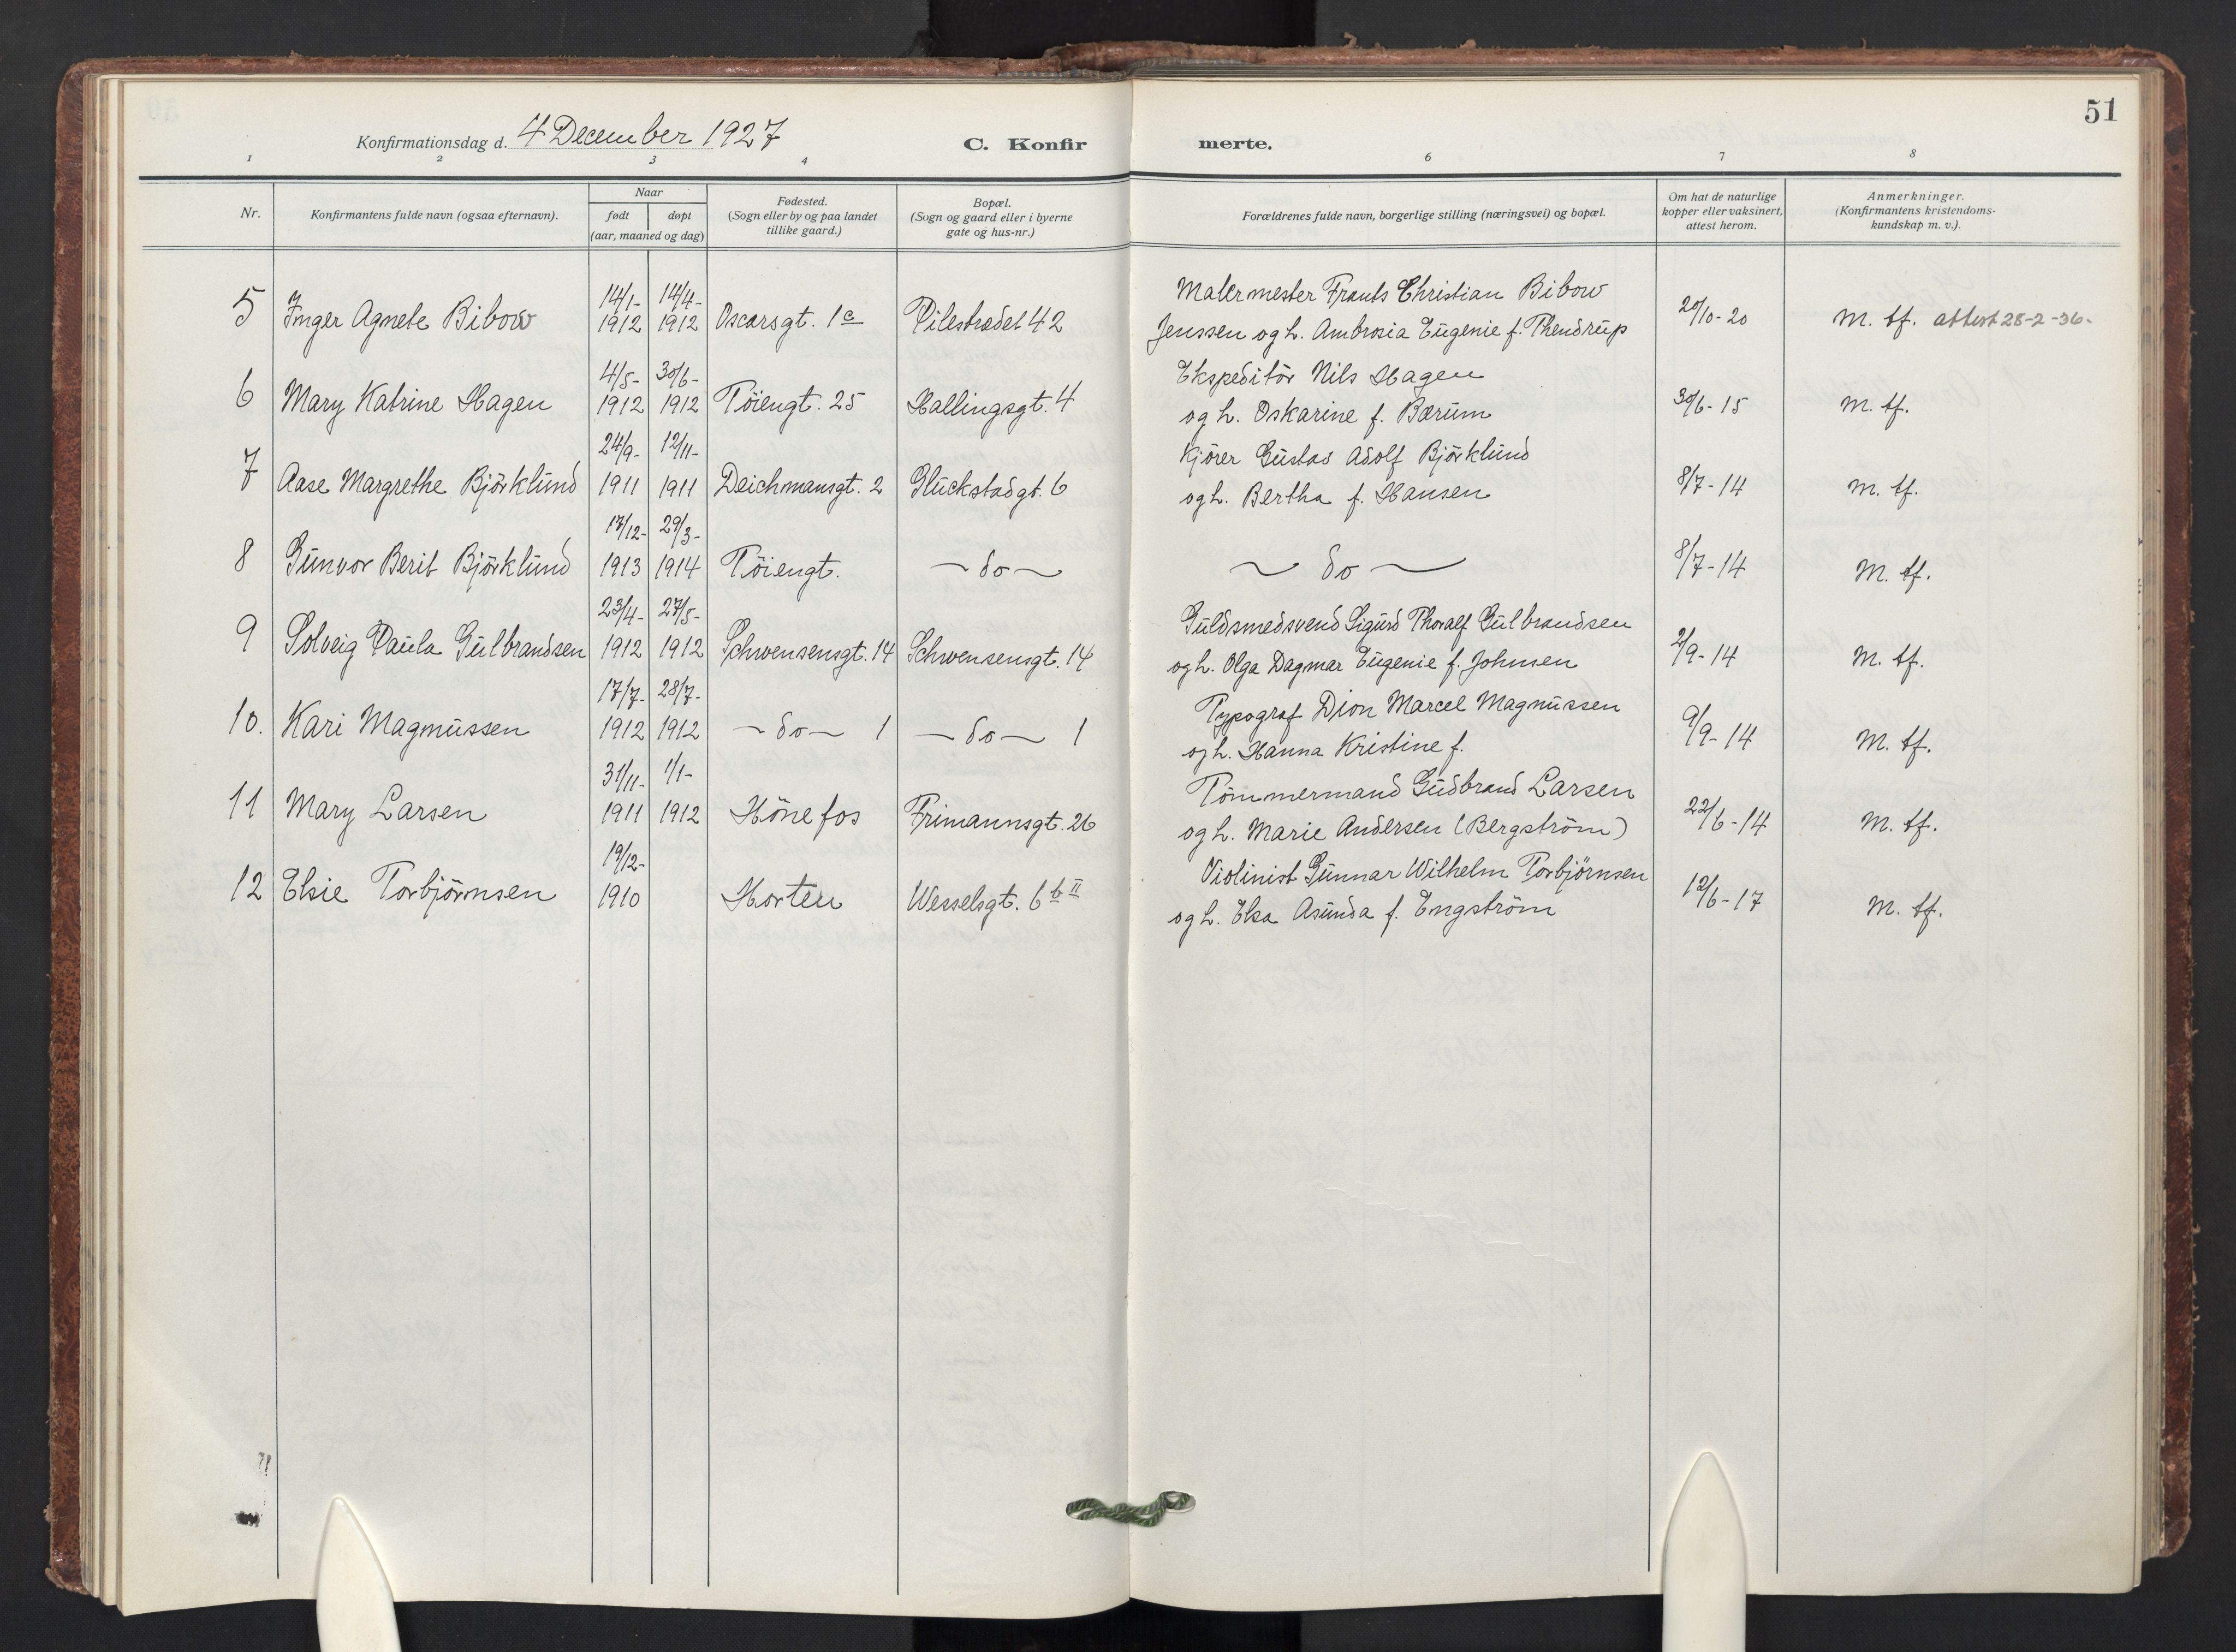 51
Konfirmationsdag d. 4 December 1927
C. Konfirmerte.
1 2 3 4 6 7 8
Nr.
Konfirmantens fulde navn (ogsaa efternavn).
Naar
født døpt
(aar, maaned og dag)
Fødested.
(Sogn eller by og paa landet
tillike gaard.)
Bopæl.
(Sogn og gaard eller i byerne
gate og hus-nr.)
Forældrenes fulde navn, borgerlige stilling (næringsvei) og bopæl.
Om hat de naturlige
kopper eller vaksinert,
attest herom.
Anmerkninger.
(Konfirmantens kristendoms-
kundskap m. v.).
14/1- 14/4- Malermester Frants Christian Bibow
5 Inger Agnete Bibow 1912 1912 Oscarsgt. 1c Pilestrædet 42 Jenssen og h. Ambrosia Eugenie f. Thendrup 20/10-20 M. tf. attest 28-2-36.
4/5- 30/6- Ekspeditör Nils Hagen
6 Mary Katrine Hagen 1912 1912 Töiengt. 25 Hallingsgt. 4 og h. Oskarine f. Bærum 30/6-15 M. tf.
24/9- 12/11- Kjörer Gustav Adolf Björklund
7 Aase Margrethe Björklund 1911 1911 Deichmansgt. 2 Glückstadgt. 6 og h. Bertha f. Hansen 8/7-14 M. tf.
17/12- 29/3-
8 Gunvor Berit Björklund 1913 1914 Töiengt. ~ do ~ ~ do ~ 8/7-14 M. tf.
23/4- 27/5- Guldsmedsvend Sigurd Thoralf Gulbrandsen
9 Solveig Paula Gulbrandsen 1912 1912 Schwensensgt. 14 Schwensensgt. 14 og h. Olga Dagmar Eugenie f. Johnsen 2/9-14 M. tf.
17/7- 28/7- Typograf Dion Marcel Magnussen
10. Kari Magnussen 1912 1912 ~ do ~ 1 ~ do ~ 1 og h. Hanna Kristine f. 9/9-14 M. tf.
31/11- 1/1- Tömmermand Gudbrand Larsen
11 Mary Larsen 1911 1912 Hönefos Frimannsgt. 26 og h. Marie Andersen (Bergström) 22/6-14 M. tf.
19/12- Violinist Gunnar Wilhelm Torbjörnsen
12 Elsie Torbjörnsen 1910 Horten Wesselsgt. 6 b II og h. Elsa Asunda f. Engström 12/6-17 M. tf.